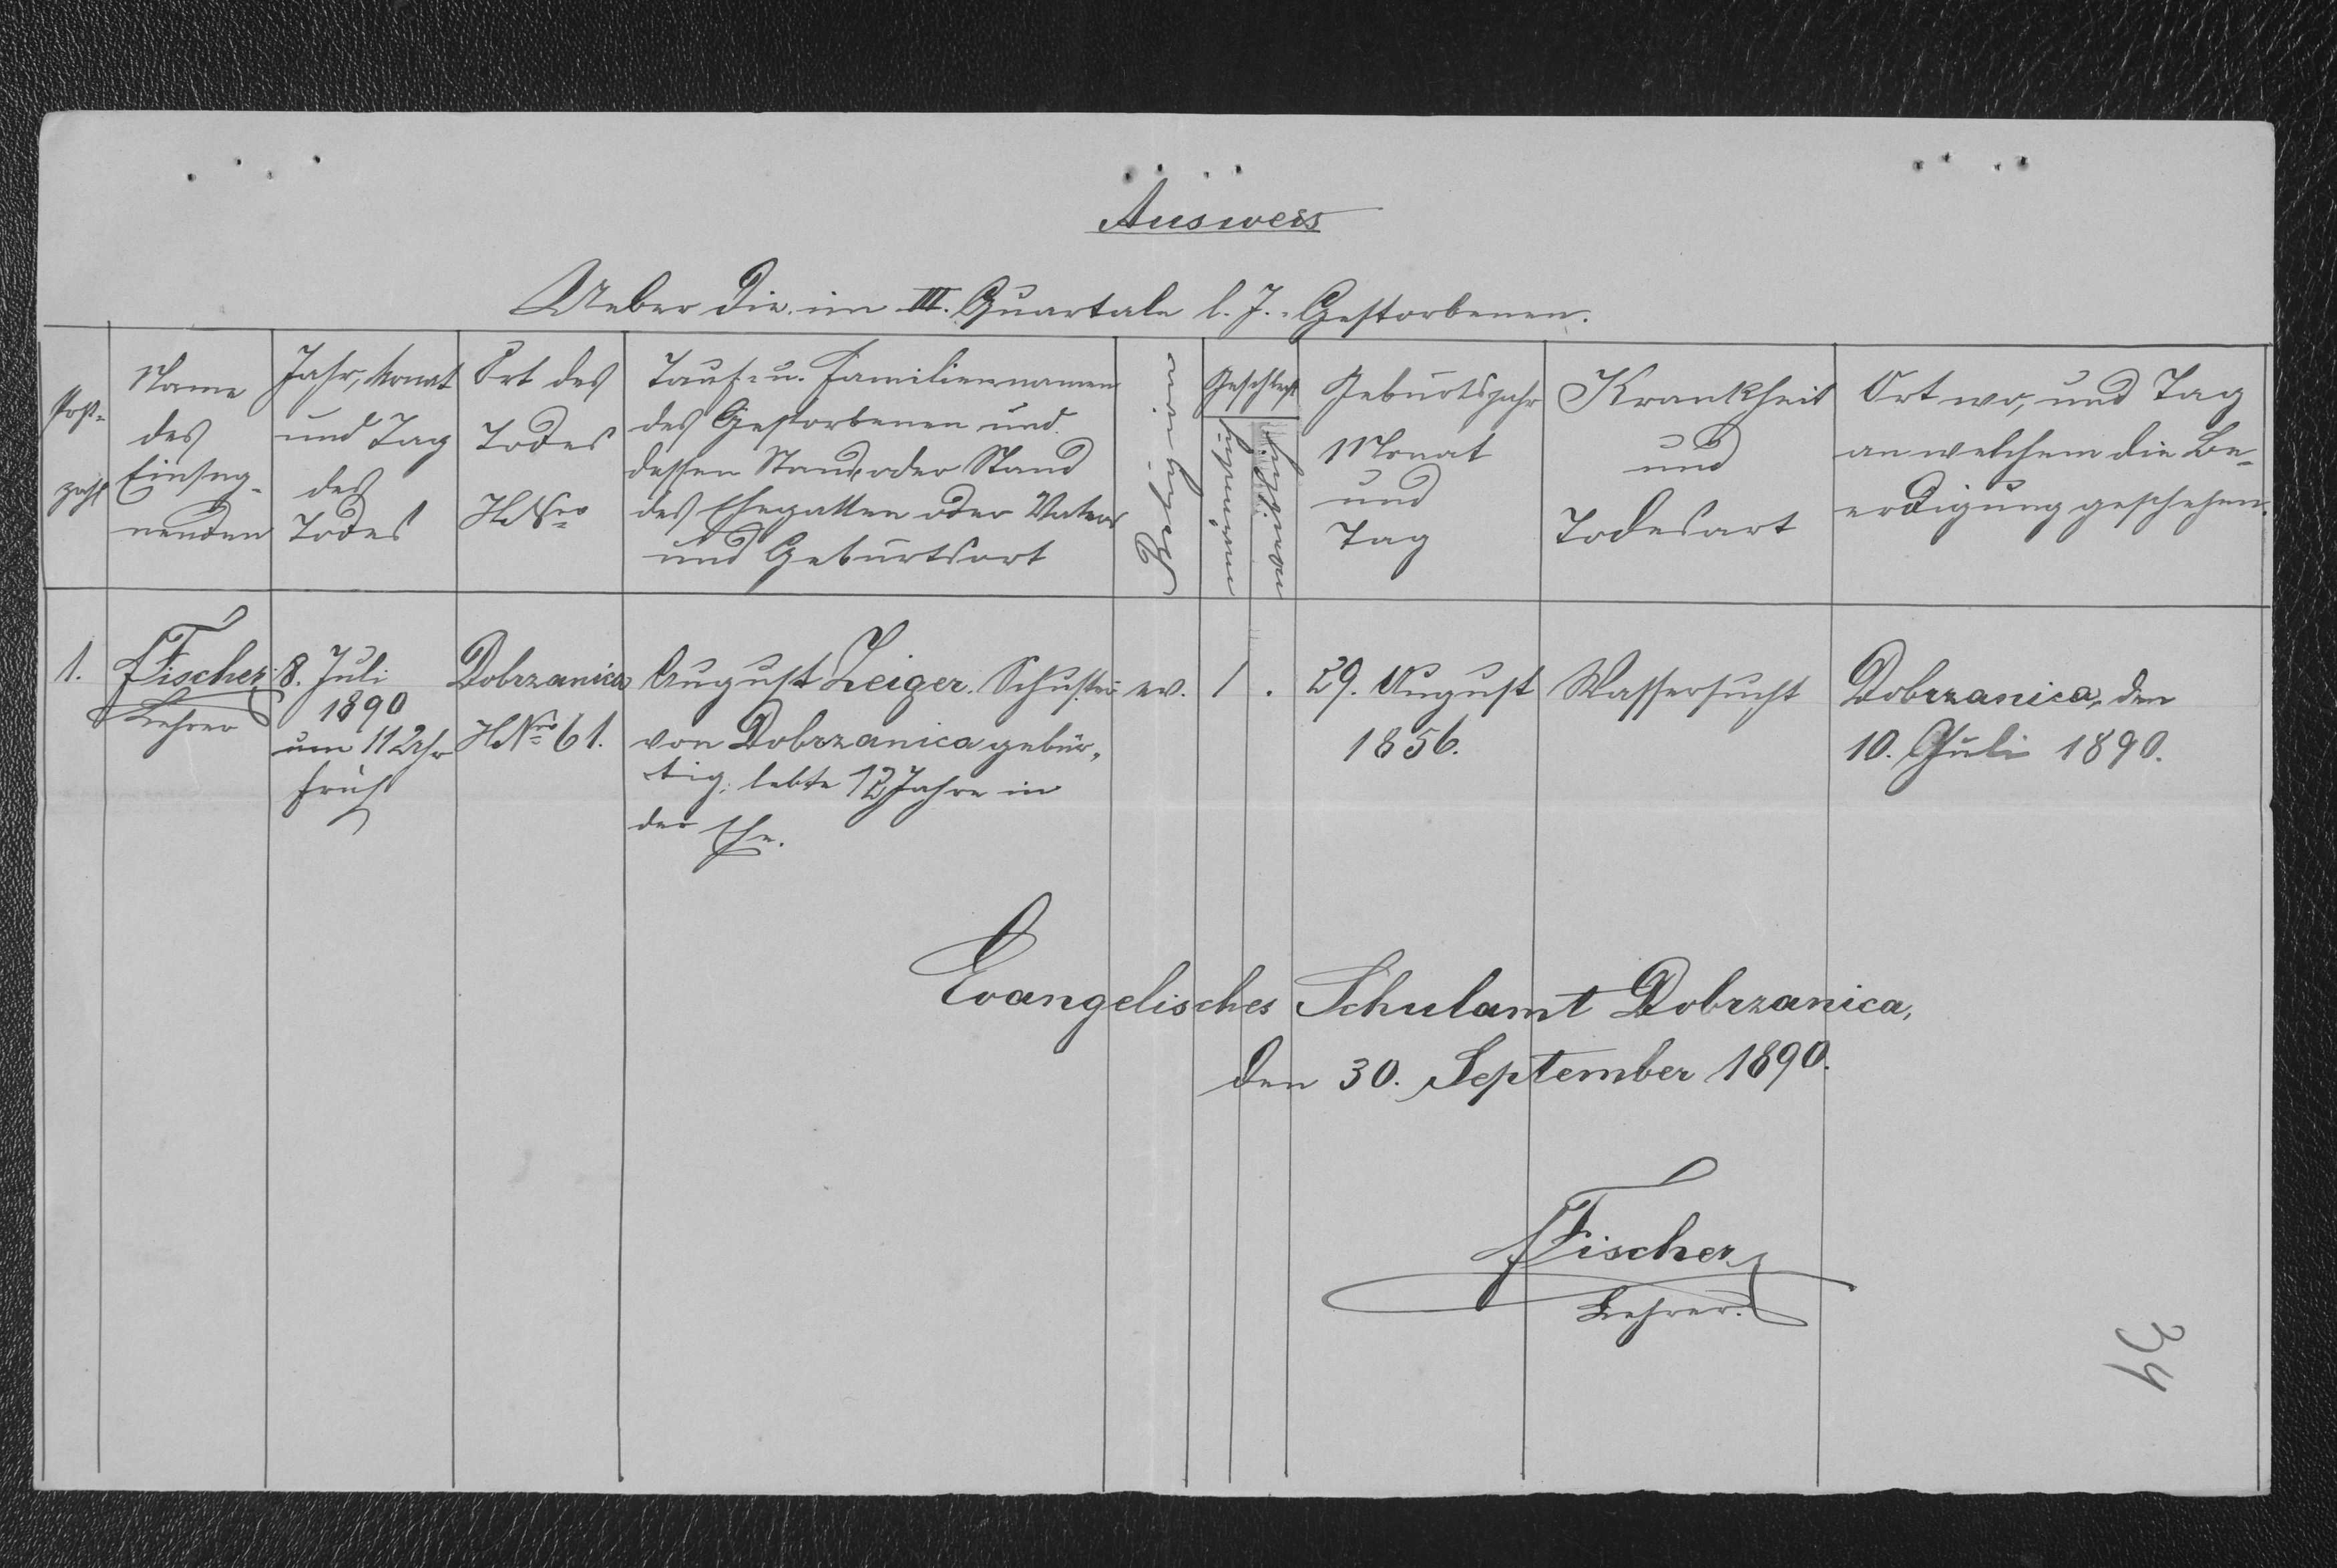 Ausweis
Ueber die im III. Quartale l. J. Gestorbenen.
Post-
zahl
Name
des
Einseg-
nenden
Jahr, Monat
und Tag
des
Todes
Ort des
Todes
H Nro
Tauf- u. Familiennamen
des Gestorbenen und
dessen Stand, oder Stand
des Ehegatten oder Vaters
und Geburtsort
Religion
Geschlecht
männlich
weiblich
Geburtsjahr
Monat
und
Tag
Krankheit
und
Todesart
Ort wo, und Tag
an welchem die Be-
erdigung geschehen.
1.
Fischer
Lehrer
8. Juli
1890
um 11 Uhr
früh
Dobrzanica
H Nro 61.
August Zeiger. Schuster
von Dobrzanica gebür-
tig, lebte 12 Jahre in
der Ehe.
ev.
1
.
29. August
1856.
Wassersucht
Dobrzanica, den
10. Juli 1890.
Evangelisches Schulamt Dobrzanica,
den 30. September 1890.
Fischer
Lehrer.
34